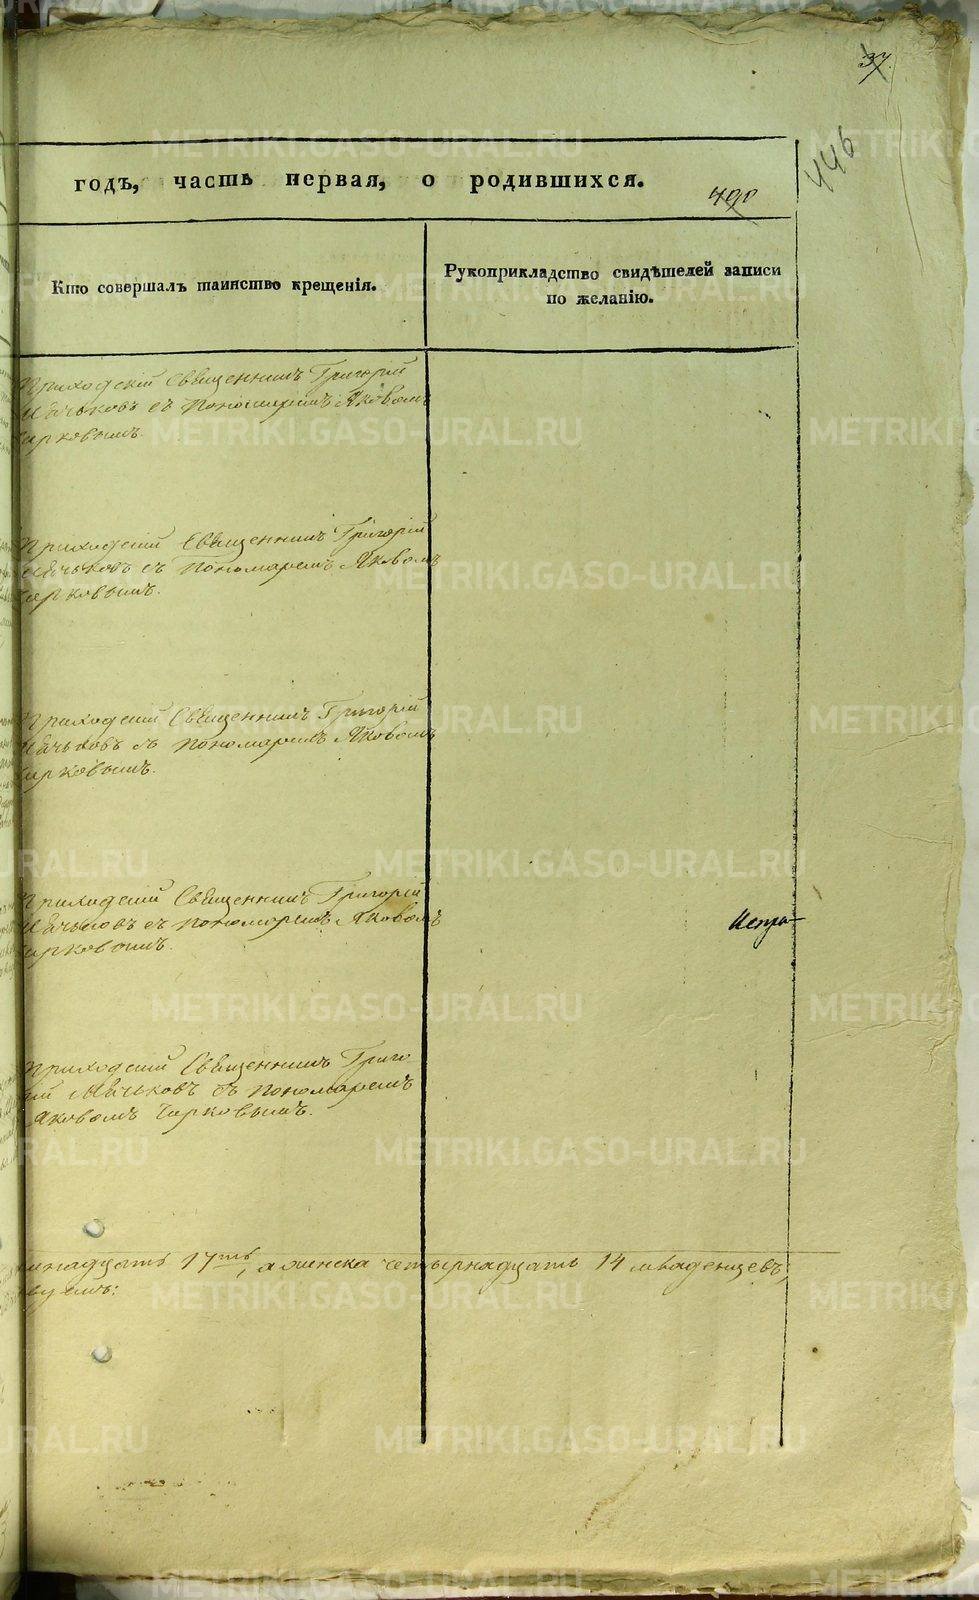 37.
446
годъ, часть первая, о родившихся.
490
Кто совершалъ таинство крещенія.
Рукоприкладство свидѣтелей записи
по желанію.
Приходскій Священникъ Григорій
Мячьковъ съ Пономаремъ Яковомъ
Чирковымъ.
Приходскій Священникъ Григорій
Мячьковъ съ Пономаремъ Яковомъ
Чирковымъ.
Приходскій Священникъ Григорій
Мячьковъ съ Пономаремъ Яковомъ
Чирковымъ.
Приходскій Священникъ Григорій
Мячьковъ съ Пономаремъ Яковомъ
Чирковымъ.
Приходскій Священникъ Григо
рій Мячьковъ съ Пономаремъ
Яковомъ Чирковымъ.
17ть, а женска четырнадцать 14 младенцевъ,
METRIKI.GASO-URAL.RU